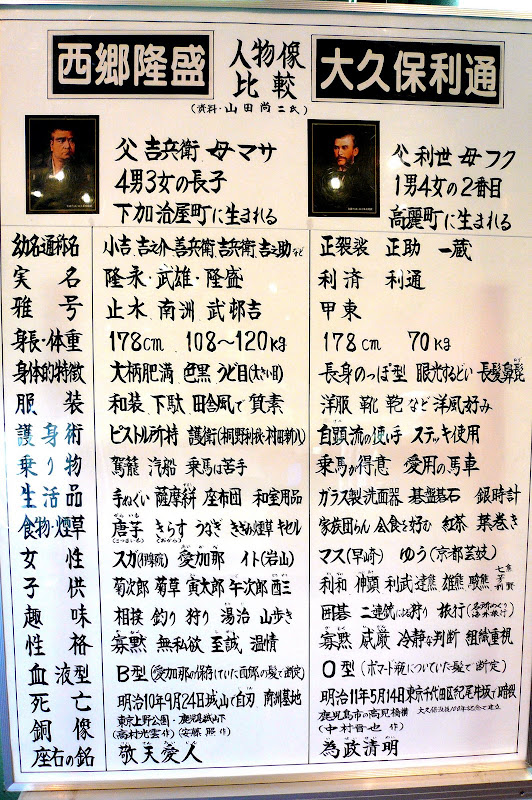 西郷隆盛 人物像比較 大久保利通
(資料・山田尚二氏)
父 吉兵衛 母 マサ
4男3女の長子
下加治屋町に生まれる
父 利世 母 フク
1男4女の2番目
高麗町に生まれる
幼名通称名 小吉 吉之介 善兵衛 吉兵衛 吉之助など 正袈裟 正助 一蔵
実名 隆永・武雄・隆盛 利済 利通
雅号 止水 南洲 武邨吉 甲東
身長・体重 178cm 108〜120kg 178cm 70kg
身体的特徴 大柄肥満 色黒 うど目(大きい目) 長身のっぽ型 眼光するどい 長髪鼻髭
服装 和装 下駄 田舎風で質素 洋服 靴 鞄など洋風好み
護身術 ピストル所持 護衛(桐野利秋・村田新八) 自顕流の使い手 ステッキ使用
乗り物 駕籠 汽船 乗馬は苦手 乗馬が得意 愛用の馬車
生活品 手ぬぐい 薩摩絣 座布団 和室用品 ガラス製洗面器 碁盤碁石 銀時計
食物・煙草 唐芋 きらす うなぎ きざみ煙草 キセル 家族団らん 会食を好む 紅茶 葉巻き
女性 スガ(伊集院) 愛加那 イト(岩山) マス(早崎) ゆう(京都芸妓)
子供 菊次郎 菊草 寅太郎 午次郎 酉三 利和 伸顕 利武 達熊 雄熊 駿熊 七熊 芳子 利賢
趣味 相撲 釣り 狩り 湯治 山歩き 囲碁 二連銃による狩り 旅行
性格 寡黙 無私欲 至誠 温情 寡黙 威厳 冷静な判断 組織重視
血液型 B型(愛加那の保存していた西郎の髪で断定) O型(ポマード瓶についていた髪で断定)
死亡 明治10年9月24日城山で自刃 南洲墓地 明治11年5月14日東京千代田区紀尾井坂で暗殺
銅像 東京上野公園・鹿児島城山下 鹿児島市の高見橋横 大久保没後100年記念で建立
(高村光雲 作)(安藤 照 作) (中村晋也 作)
座右の銘 敬天愛人 為政清明